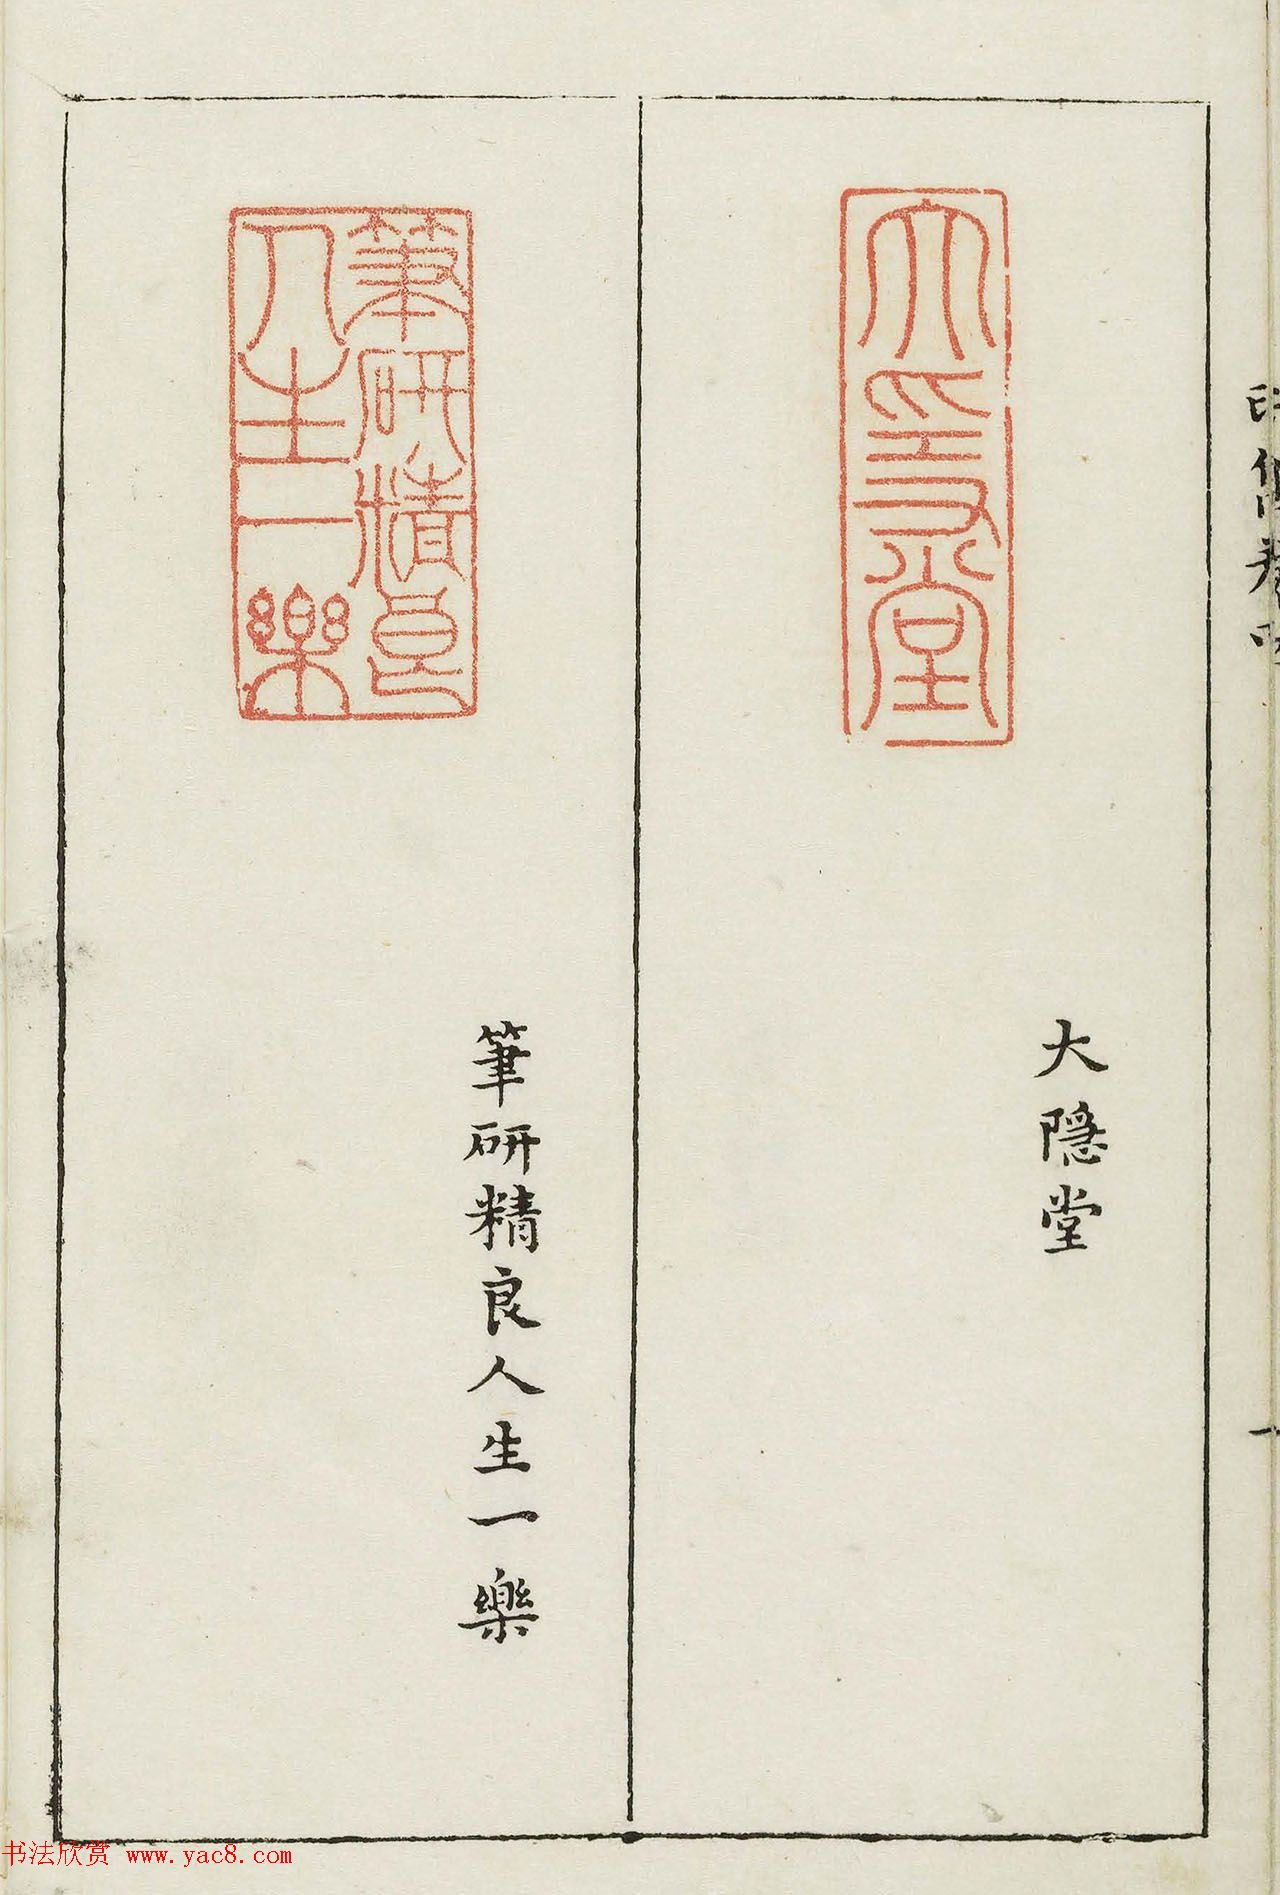 大隱堂
大隐堂
筆研精良
人生一樂
筆研精良人生一樂
书法欣赏 www.yac8.com